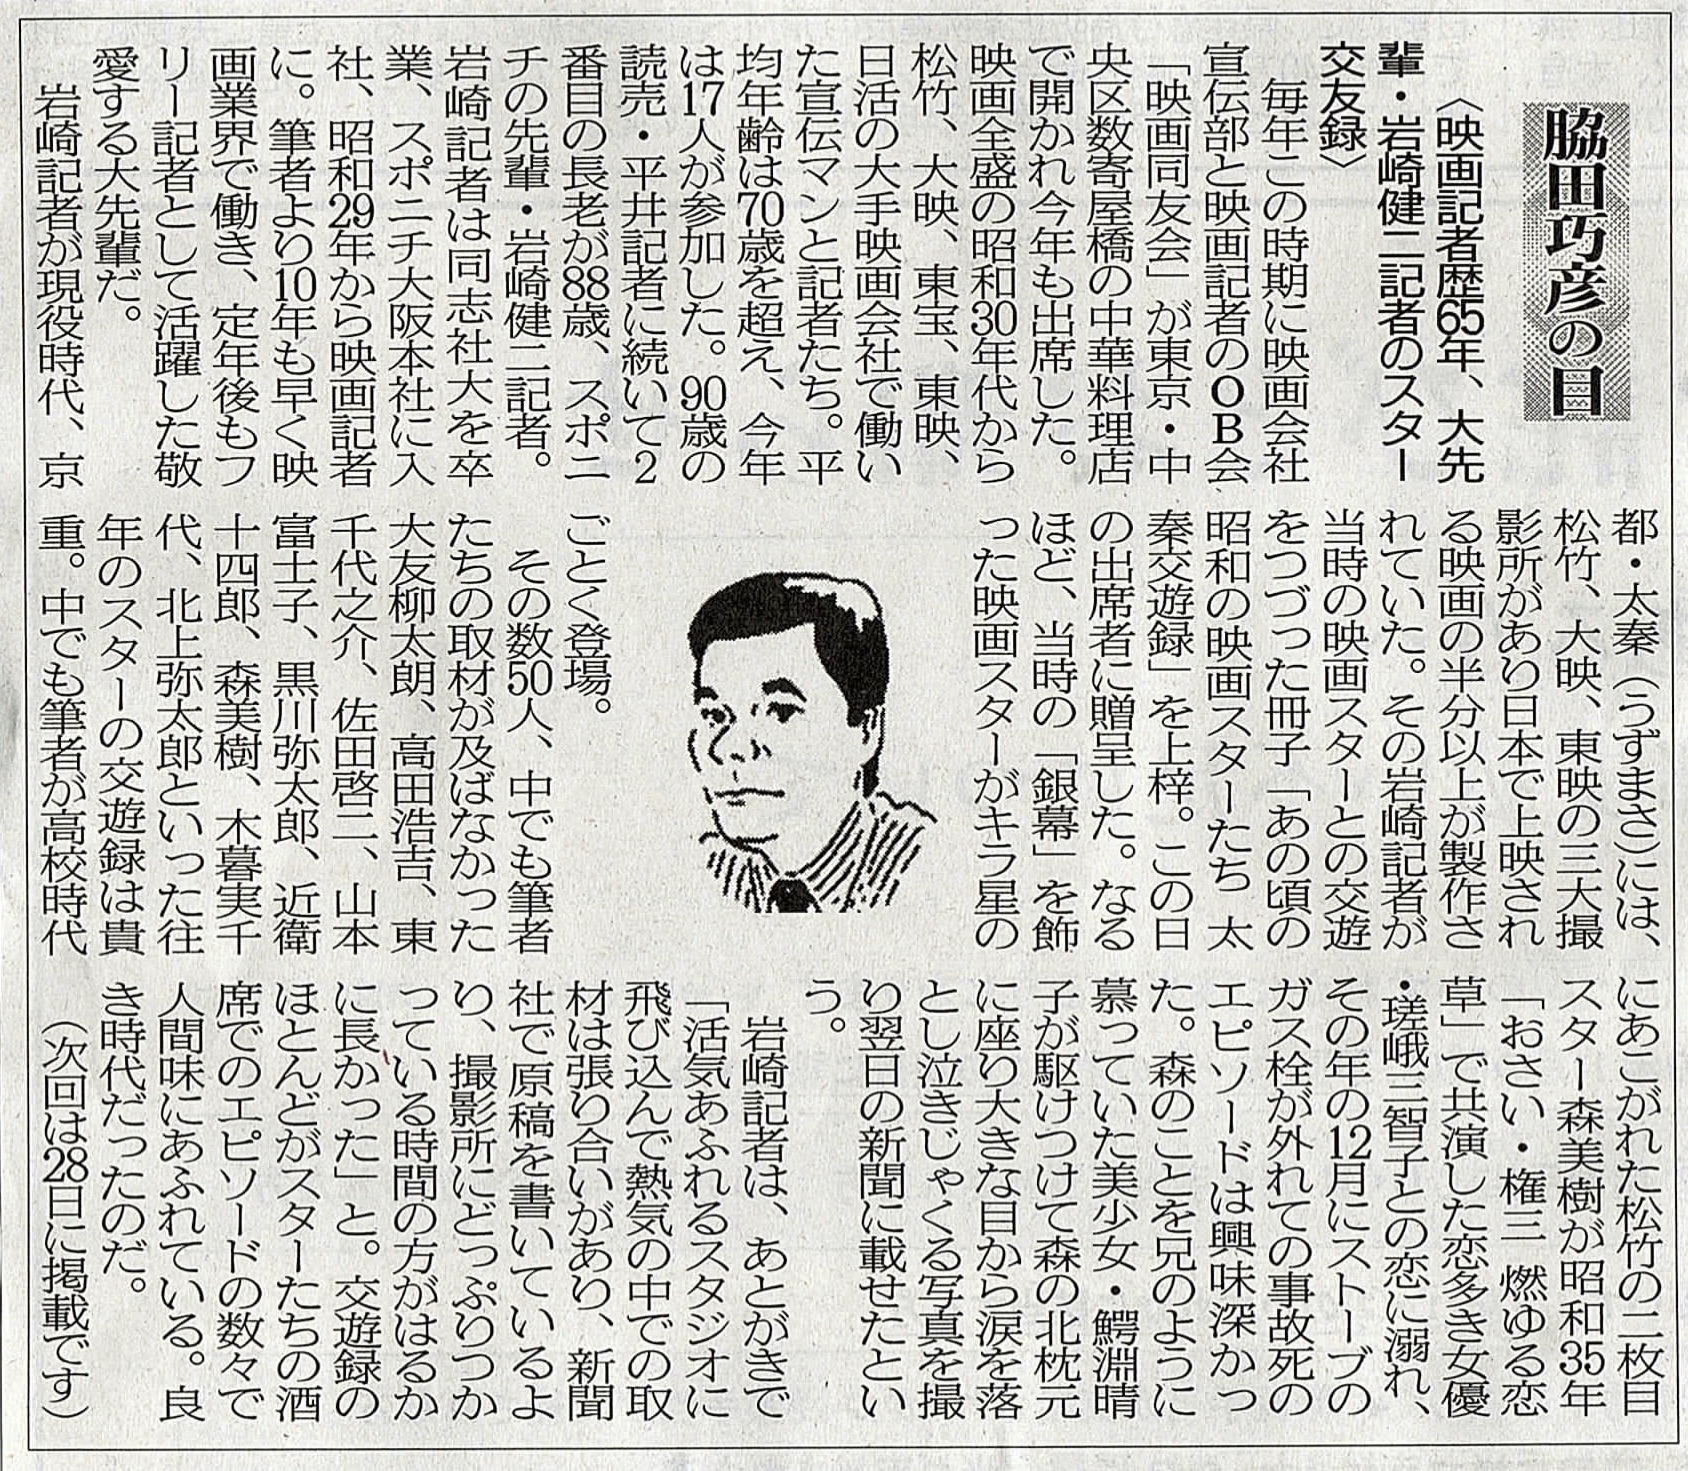 脇田巧彦の目
〈映画記者歴65年、大先
輩・岩崎健二記者のスター
交友録〉
毎年この時期に映画会社
宣伝部と映画記者のOB会
「映画同友会」が東京・中
央区数寄屋橋の中華料理店
で開かれ今年も出席した。
映画全盛の昭和30年代から
松竹、大映、東宝、東映、
日活の大手映画会社で働い
た宣伝マンと記者たち。平
均年齢は70歳を超え、今年
は17人が参加した。90歳の
読売・平井記者に続いて2
番目の長老が88歳、スポニ
チの先輩・岩崎健二記者。
岩崎記者は同志社大を卒
業、スポニチ大阪本社に入
社、昭和29年から映画記者
に。筆者より10年も早く映
画業界で働き、定年後もフ
リー記者として活躍した敬
愛する大先輩だ。
岩崎記者が現役時代、京
都・太秦(うずまさ)には、
松竹、大映、東映の三大撮
影所があり日本で上映され
る映画の半分以上が製作さ
れていた。その岩崎記者が
当時の映画スターとの交遊
をつづった冊子「あの頃の
昭和の映画スターたち 太
秦交遊録」を上梓。この日
の出席者に贈呈した。なる
ほど、当時の「銀幕」を飾
った映画スターがキラ星の
ごとく登場。
その数50人、中でも筆者
たちの取材が及ばなかった
大友柳太朗、高田浩吉、東
千代之介、佐田啓二、山本
富士子、黒川弥太郎、近衛
十四郎、森美樹、木暮実千
代、北上弥太郎といった往
年のスターの交遊録は貴
重。中でも筆者が高校時代
にあこがれた松竹の二枚目
スター森美樹が昭和35年
「おさい・権三 燃ゆる恋
草」で共演した恋多き女優
・瑳峨三智子との恋に溺れ、
その年の12月にストーブの
ガス栓が外れての事故死の
エピソードは興味深かっ
た。森のことを兄のように
慕っていた美少女・鰐淵晴
子が駆けつけて森の北枕元
に座り大きな目から涙を落
とし泣きじゃくる写真を撮
り翌日の新聞に載せたとい
う。
岩崎記者は、あとがきで
「活気あふれるスタジオに
飛び込んで熱気の中での取
材は張り合いがあり、新聞
社で原稿を書いているよ
り、撮影所にどっぷりつか
っている時間の方がはるか
に長かった」と。交遊録の
ほとんどがスターたちの酒
席でのエピソードの数々で
人間味にあふれている。良
き時代だったのだ。
(次回は28日に掲載です)